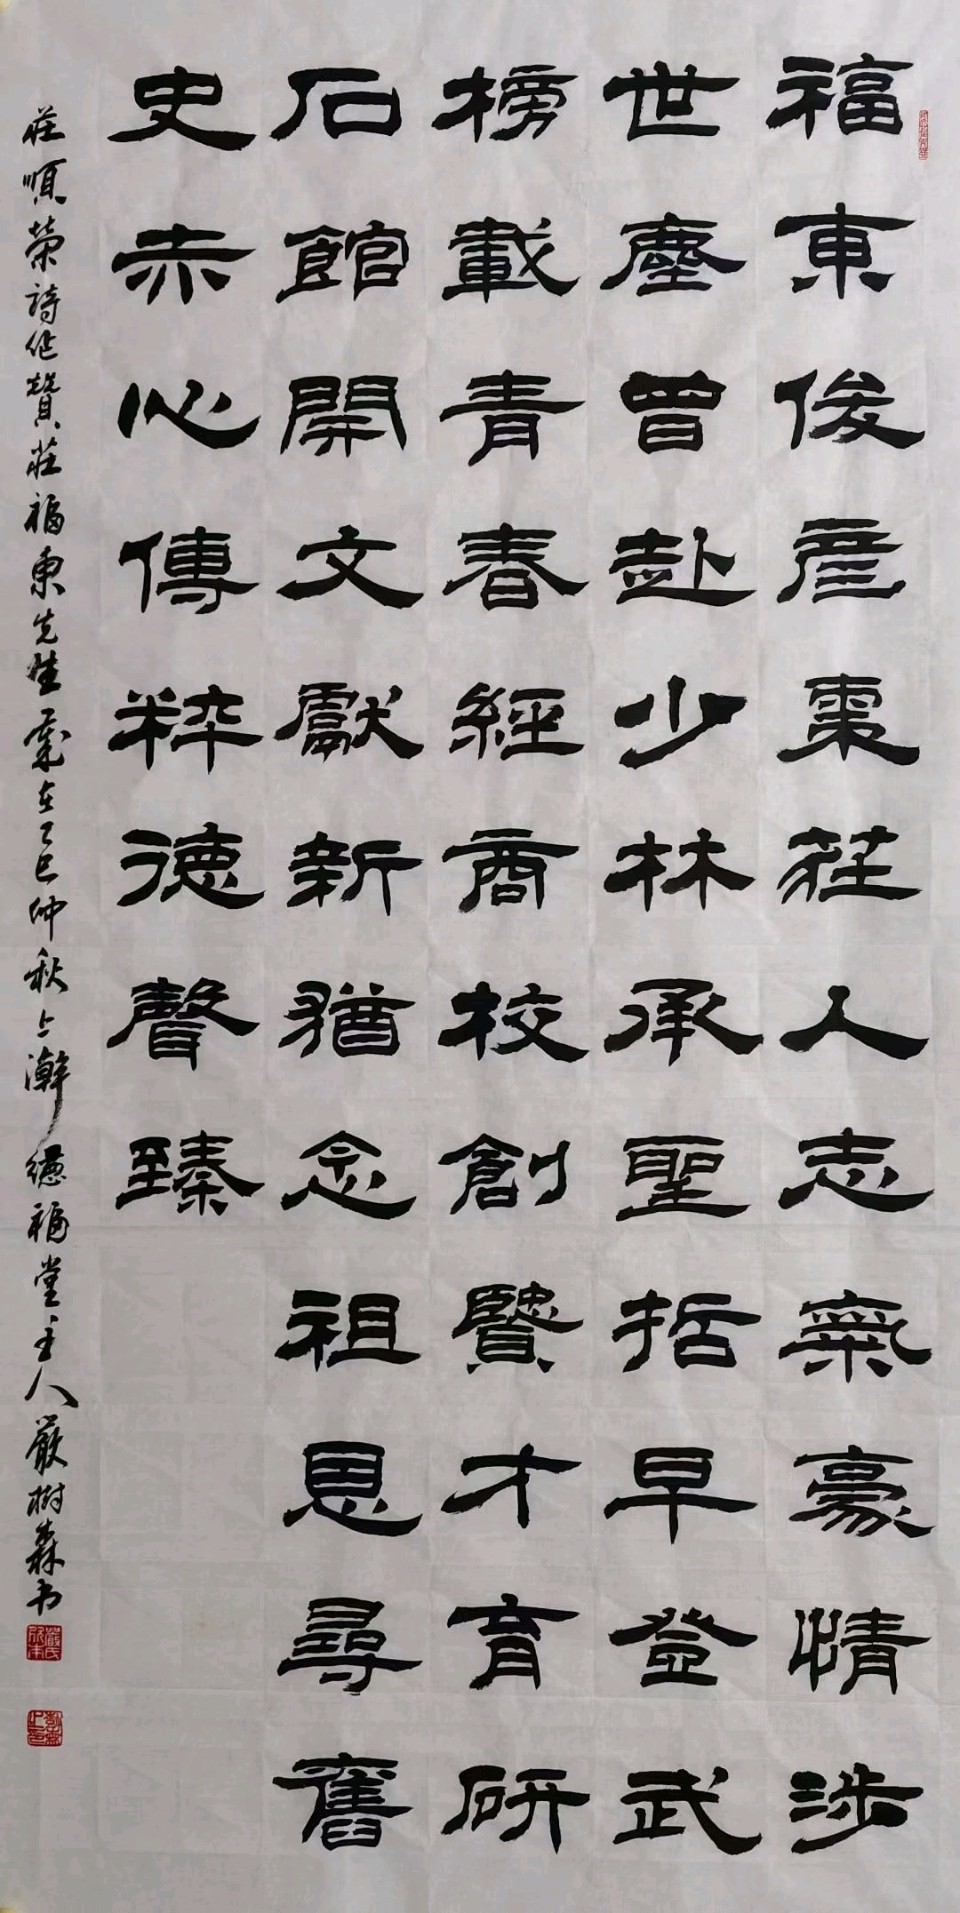 福東俊彦棗莊人志氣豪情涉
世塵曾赴少林承聖括早登武
榜載青春經商校創賢才育研
石館開文獻新猶念祖恩尋舊
史赤心傳粹德聲臻
莊順榮詩作贊莊福東先生歲在乙巳仲秋上瀚德福堂主人嚴樹森书